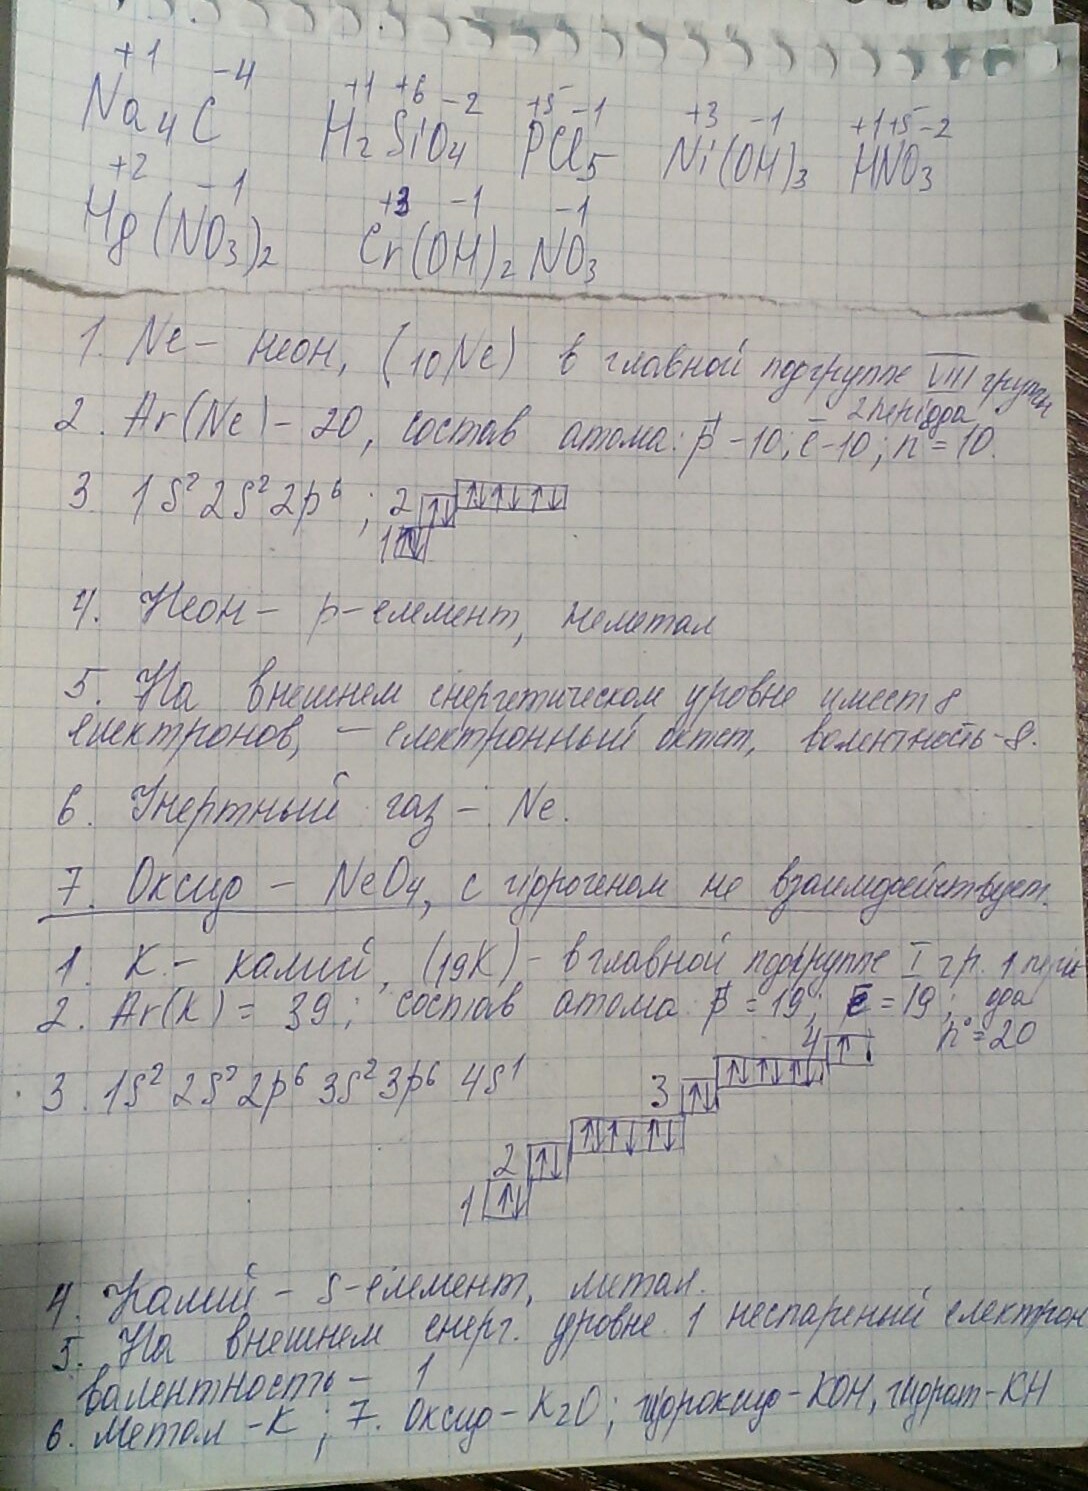 +1 -4 +1 +6 -2 +5 -1 +3 -1 +1+5-2
Na4C H2SiO4 PCl5 Ni(OH)3 HNO3
+2 -1 +3 -1 -1
Mg(NO3)2 Cr(OH)2NO3
1. Ne - неон, (10Ne) в главной подгруппе VIII групы
2 периода
2. Ar(Ne) - 20, состав атома: p - 10; e - 10; n = 10.
3. 1s² 2s² 2p⁶; 2 ↑↓ ↑↓↑↓↑↓
1 ↑↓
4. Неон - p-елемент, неметал
5. На внешнем енергетическом уровне имеет 8
електронов, - електронный октет, валентность-8.
6. Инертный газ - Ne.
7. Оксид - NeO4, с гидрогеном не взаемодействует.
1. K - калий, (19K) - в главной подгруппе I гр. 1 пери
ода
2. Ar(K) = 39; состав атома p = 19; e = 19;
n° = 20
3. 1s² 2s² 2p⁶ 3s² 3p⁶ 4s¹
4 ↑
3 ↑↓ ↑↓↑↓↑↓
2 ↑↓ ↑↓↑↓↑↓
1 ↑↓
4. Калий - s-елемент, метал.
5. На внешнем енерг. уровне 1 неспареный електрон
валентность - 1
6. Метал - K; 7. Оксид - K2O; гидроксид - KOH, гидрат - KH